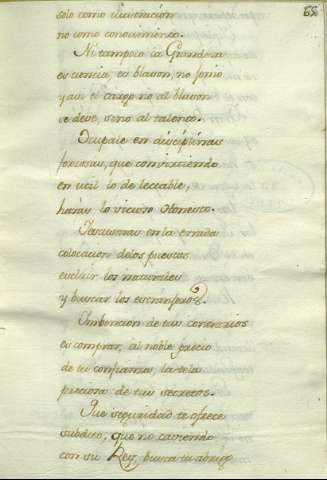 65
solo como ilustracion
no como conocimiento.
Ni tampoco la Grandeza
es ciencia, es blason, no
y asi el cargo no al blason
se deve, sino al talento.
Ocupate en disciplinas
forzosas, que convirtiendo
en util lo delectable,
harás lo vicioso honesto.
en la errada
colocacion delos puestos
excluir los naturales
y buscar los estrangeros.
Imbencion de tus contrarios
es comprar, al noble precio
de tu confianza, la tela
preciosa de tus secretos.
Que seguridad te ofrece
subdito, que no caviendo
con su Rey, busca tu abrigo